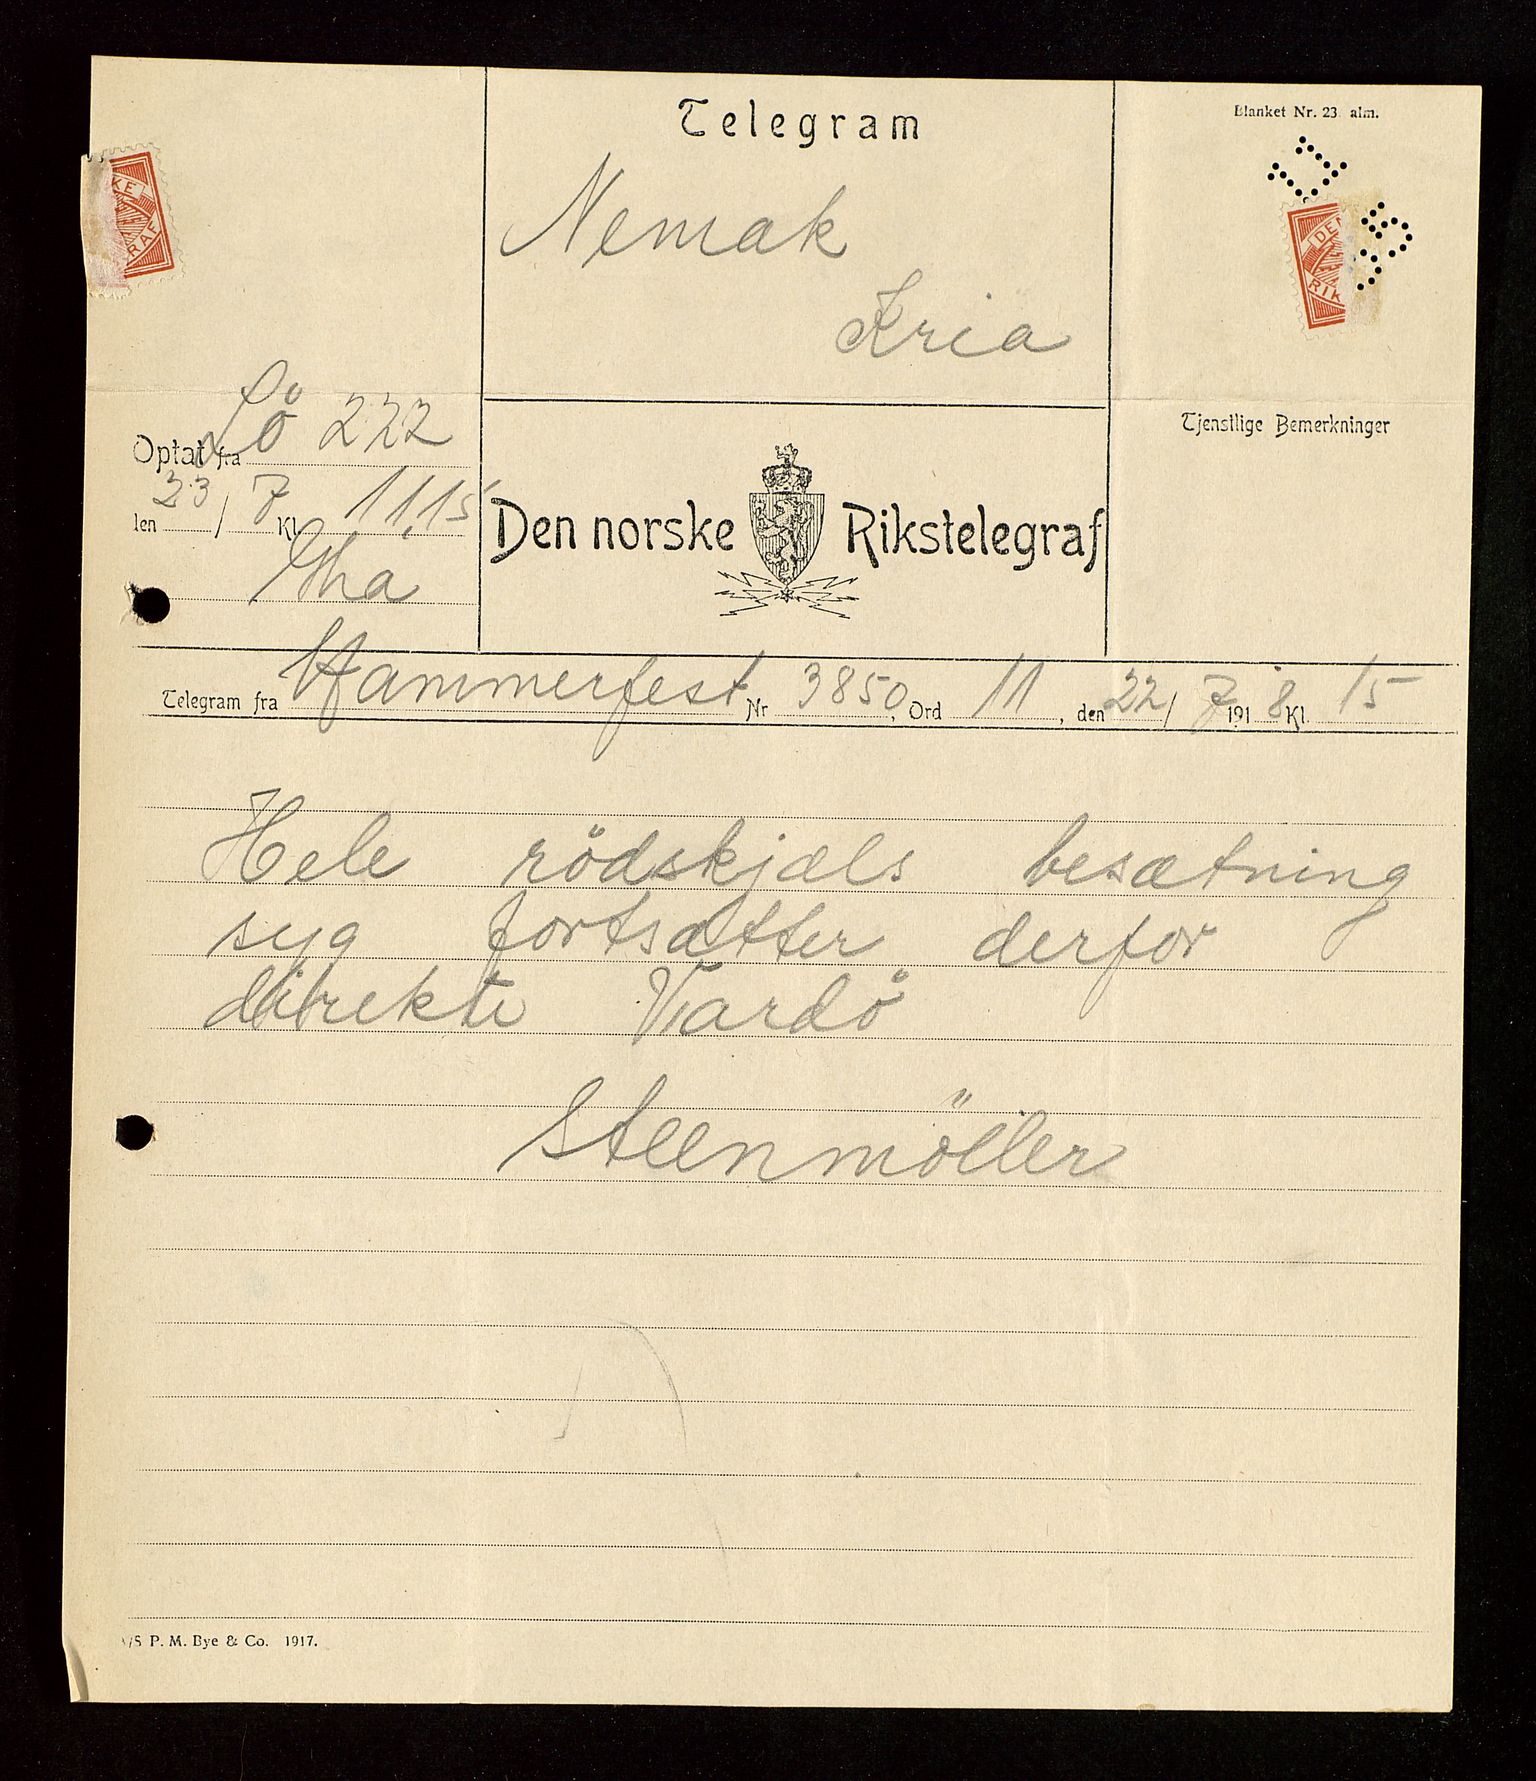 Telegram
Blanket Nr. 23 alm.
Nemak
Kria
KE
RAF
DEN
RIK
Optat fra Lö 222
den 23 / 7 Kl. 11,15
Tjenstlige Bemerkninger
Den norske Rikstelegraf
Telegram fra Hammerfest Nr 3850, Ord 11, den 22/7 1918 Kl. 15
Hele rödskjæls besætning
syg fortsætter derfor
direkte Vardö
Steenmöller
A/S P. M. Bye & Co. 1917.